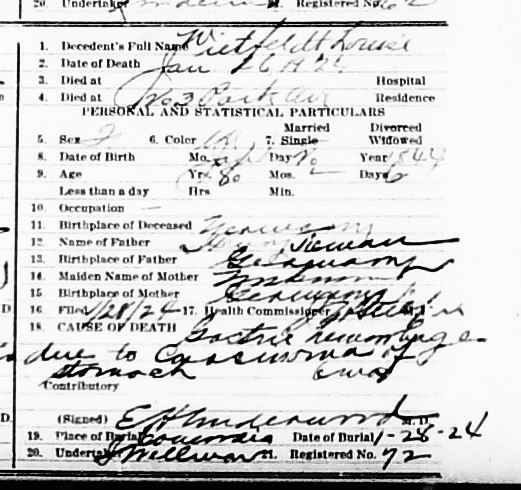 20. Undertaker 21. Registered No. 62
1. Decedent's Full Name Wietfeldt Louise
2. Date of Death Jan 26, 1924
3. Died at Hospital
4. Died at No 3 Park Ave Residence
PERSONAL AND STATISTICAL PARTICULARS
Married Divorced
5. Sex F 6. Color W 7. Single Widowed
8. Date of Birth Mo. Day Year 1844
9. Age Yrs. 80 Mos. Days 6
Less than a day Hrs Min.
10. Occupation —
11. Birthplace of Deceased Germany
12. Name of Father
13. Birthplace of Father Germany
14. Maiden Name of Mother Unknown
15. Birthplace of Mother Germany
16 Filed 1/28/24 17. Health Commissioner
18. CAUSE OF DEATH Gastric hemorrhage
due to Carcinoma of
stomach
Contributory
(Signed) E H Underwood M. D.
19. Place of Burial Concordia Date of Burial 1-28-24
20. Undertaker J Wellman 21. Registered No. 72